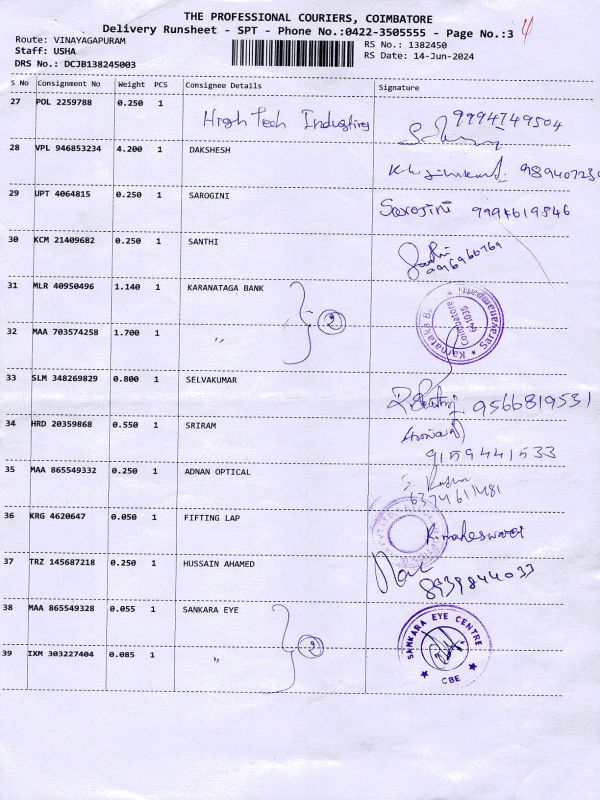 THE PROFESSIONAL COURIERS, COIMBATORE
Delivery Runsheet - SPT - Phone No.:0422-3505555 - Page No.:3 4
Route: VINAYAGAPURAM
Staff: USHA
DRS No.: DCJB138245003
RS No.: 1382450
RS Date: 14-Jun-2024
S No Consignment No Weight PCS Consignee Details Signature
27 POL 2259788 0.250 1 High Tech Industries 9994749504
28 VPL 946853234 4.200 1 DAKSHESH
29 UPT 4064815 0.250 1 SAROGINI Sarojini 9994619546
30 KCM 21409682 0.250 1 SANTHI
31 MLR 40950496 1.140 1 KARANATAGA BANK 2
32 MAA 703574258 1.700 1 "
33 SLM 348269829 0.800 1 SELVAKUMAR 9566819531
34 HRD 20359868 0.550 1 SRIRAM 9159441533
35 MAA 865549332 0.250 1 ADNAN OPTICAL
36 KRG 4620647 0.050 1 FIFTING LAP R.maheswari
37 TRZ 145687218 0.250 1 HUSSAIN AHAMED 8939844033
38 MAA 865549328 0.055 1 SANKARA EYE 2 SANKARA EYE CENTRE CBE
39 IXM 303227404 0.085 1 "